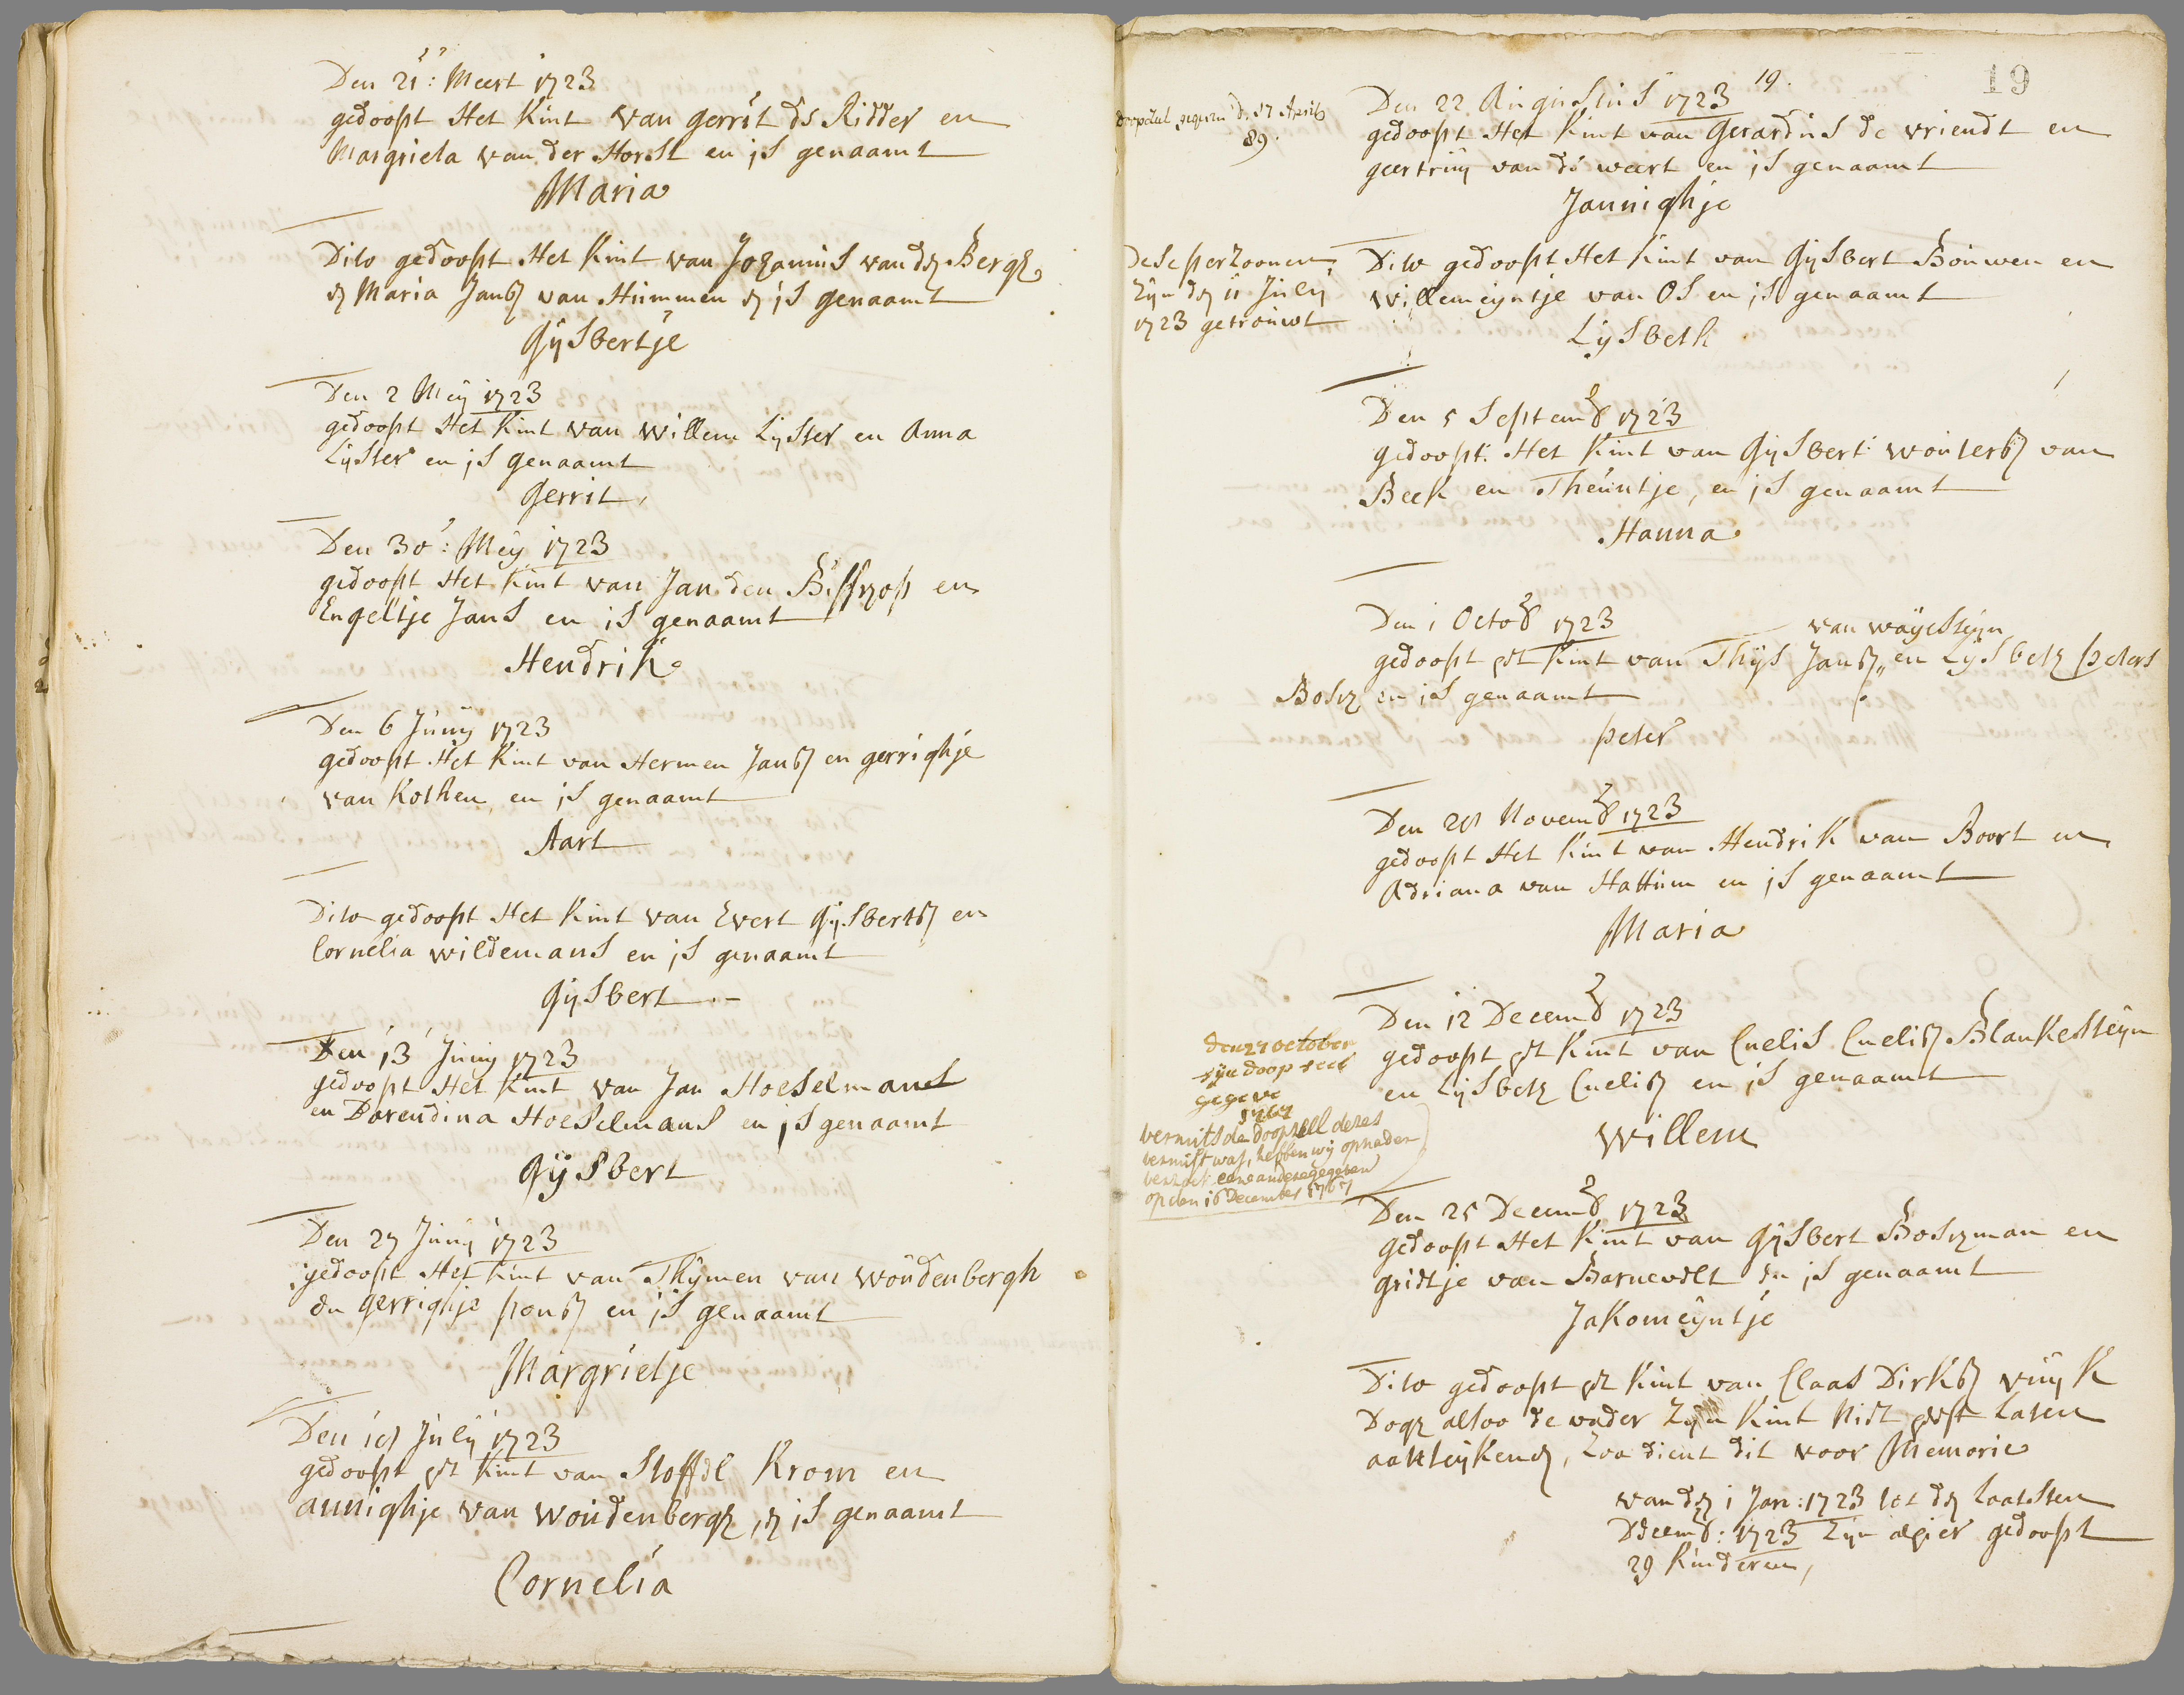 Den 21: Meert 1723
gedoopt Het Kint van gerrit de Ridder en
Margrieta van der Horst en is genaamt
Maria
Dito gedoopt Het Kint van Johannis van den Bergh
en Maria Jansz van Hummen en is genaamt
Gijsbertje
Den 2 Meij 1723
gedoopt Het Kint van Willem Lijster en Anna
Lijster en is genaamt
Gerrit
Den 30: Meij 1723
gedoopt Het Kint van Jan den Bisschop en
Engeltje Jans en is genaamt
Hendrik
Den 6 Junij 1723
gedoopt Het Kint van Hermen Jansz en gerrighje
van Kothen, en is genaamt
Aart
Dito gedoopt Het Kint van Evert Gijsbertsz en
Cornelia wildemans en is genaamt
Gijsbert
Den 13 Junij 1723
gedoopt Het Kint van Jan Hoeselmans
en Darendina Hoeselmans en is genaamt
Gijsbert
Den 27 Junij 1723
gedoopt Het Kint van Thijmen van Woudenbergh
en gerrighje ponsz en is genaamt
Margrietje
Den 18 Julij 1723
gedoopt het Kint van Stoffel Krom en
annighje van Woudenbergh, en is genaamt
Cornelia
19.
19
doopceel gegeven d. 17 April
89.
Den 22 Augustus 1723
gedoopt Het Kint van Gerardus de vriendt en
geertruij van de weert en is genaamt
Jannighje
Dese perzoonen
Zijn den 11 Julij
1723 getrouwt
Dito gedoopt Het Kint van Gijsbert Bouwen en
Willemeijntje van Os en is genaamt
Lijsbeth
Den 5 Septemb 1723
gedoopt: Het Kint van Gijsbert Woutersz van
Beek en Theuntje, en is genaamt
Hanna
Den 1 Octob 1723
van waijesteijn
gedoopt het Kint van Thijs Jansz, en Lijsbeth peters
Bosch en is genaamt
peter
Den 28 Novemb 1723
gedoopt Het Kint van Hendrik van Boort en
Adriana van Hattum en is genaamt
Maria
Den 12 Decemb 1723
gedoopt het Kint van Cnelis Cnelisz Blankesteijn
en Lijsbeth Cnelisz en is genaamt
Willem
den 27 october
sijn doop ceel
gegeve
1767
vermits de doopcell deses
vermist was, hebben wij op nader
verzoek eene andere gegeven
op den 16 December 1767
Den 25 Decemb 1723
gedoopt Het Kint van Gijsbert Boschman en
grietje van Barnevelt en is genaamt
Jakomeijntje
Dito gedoopt het Kint van Claas Dirksz vuijk
Dogh alsoo de vader Zijn Kint niet heeft laten
aanteijkenen, Zoo dient dit voor Memorie
van den 1 Jan: 1723 tot den laatsten
Decemb: 1723 Zijn alhier gedoopt
29 Kinderen,